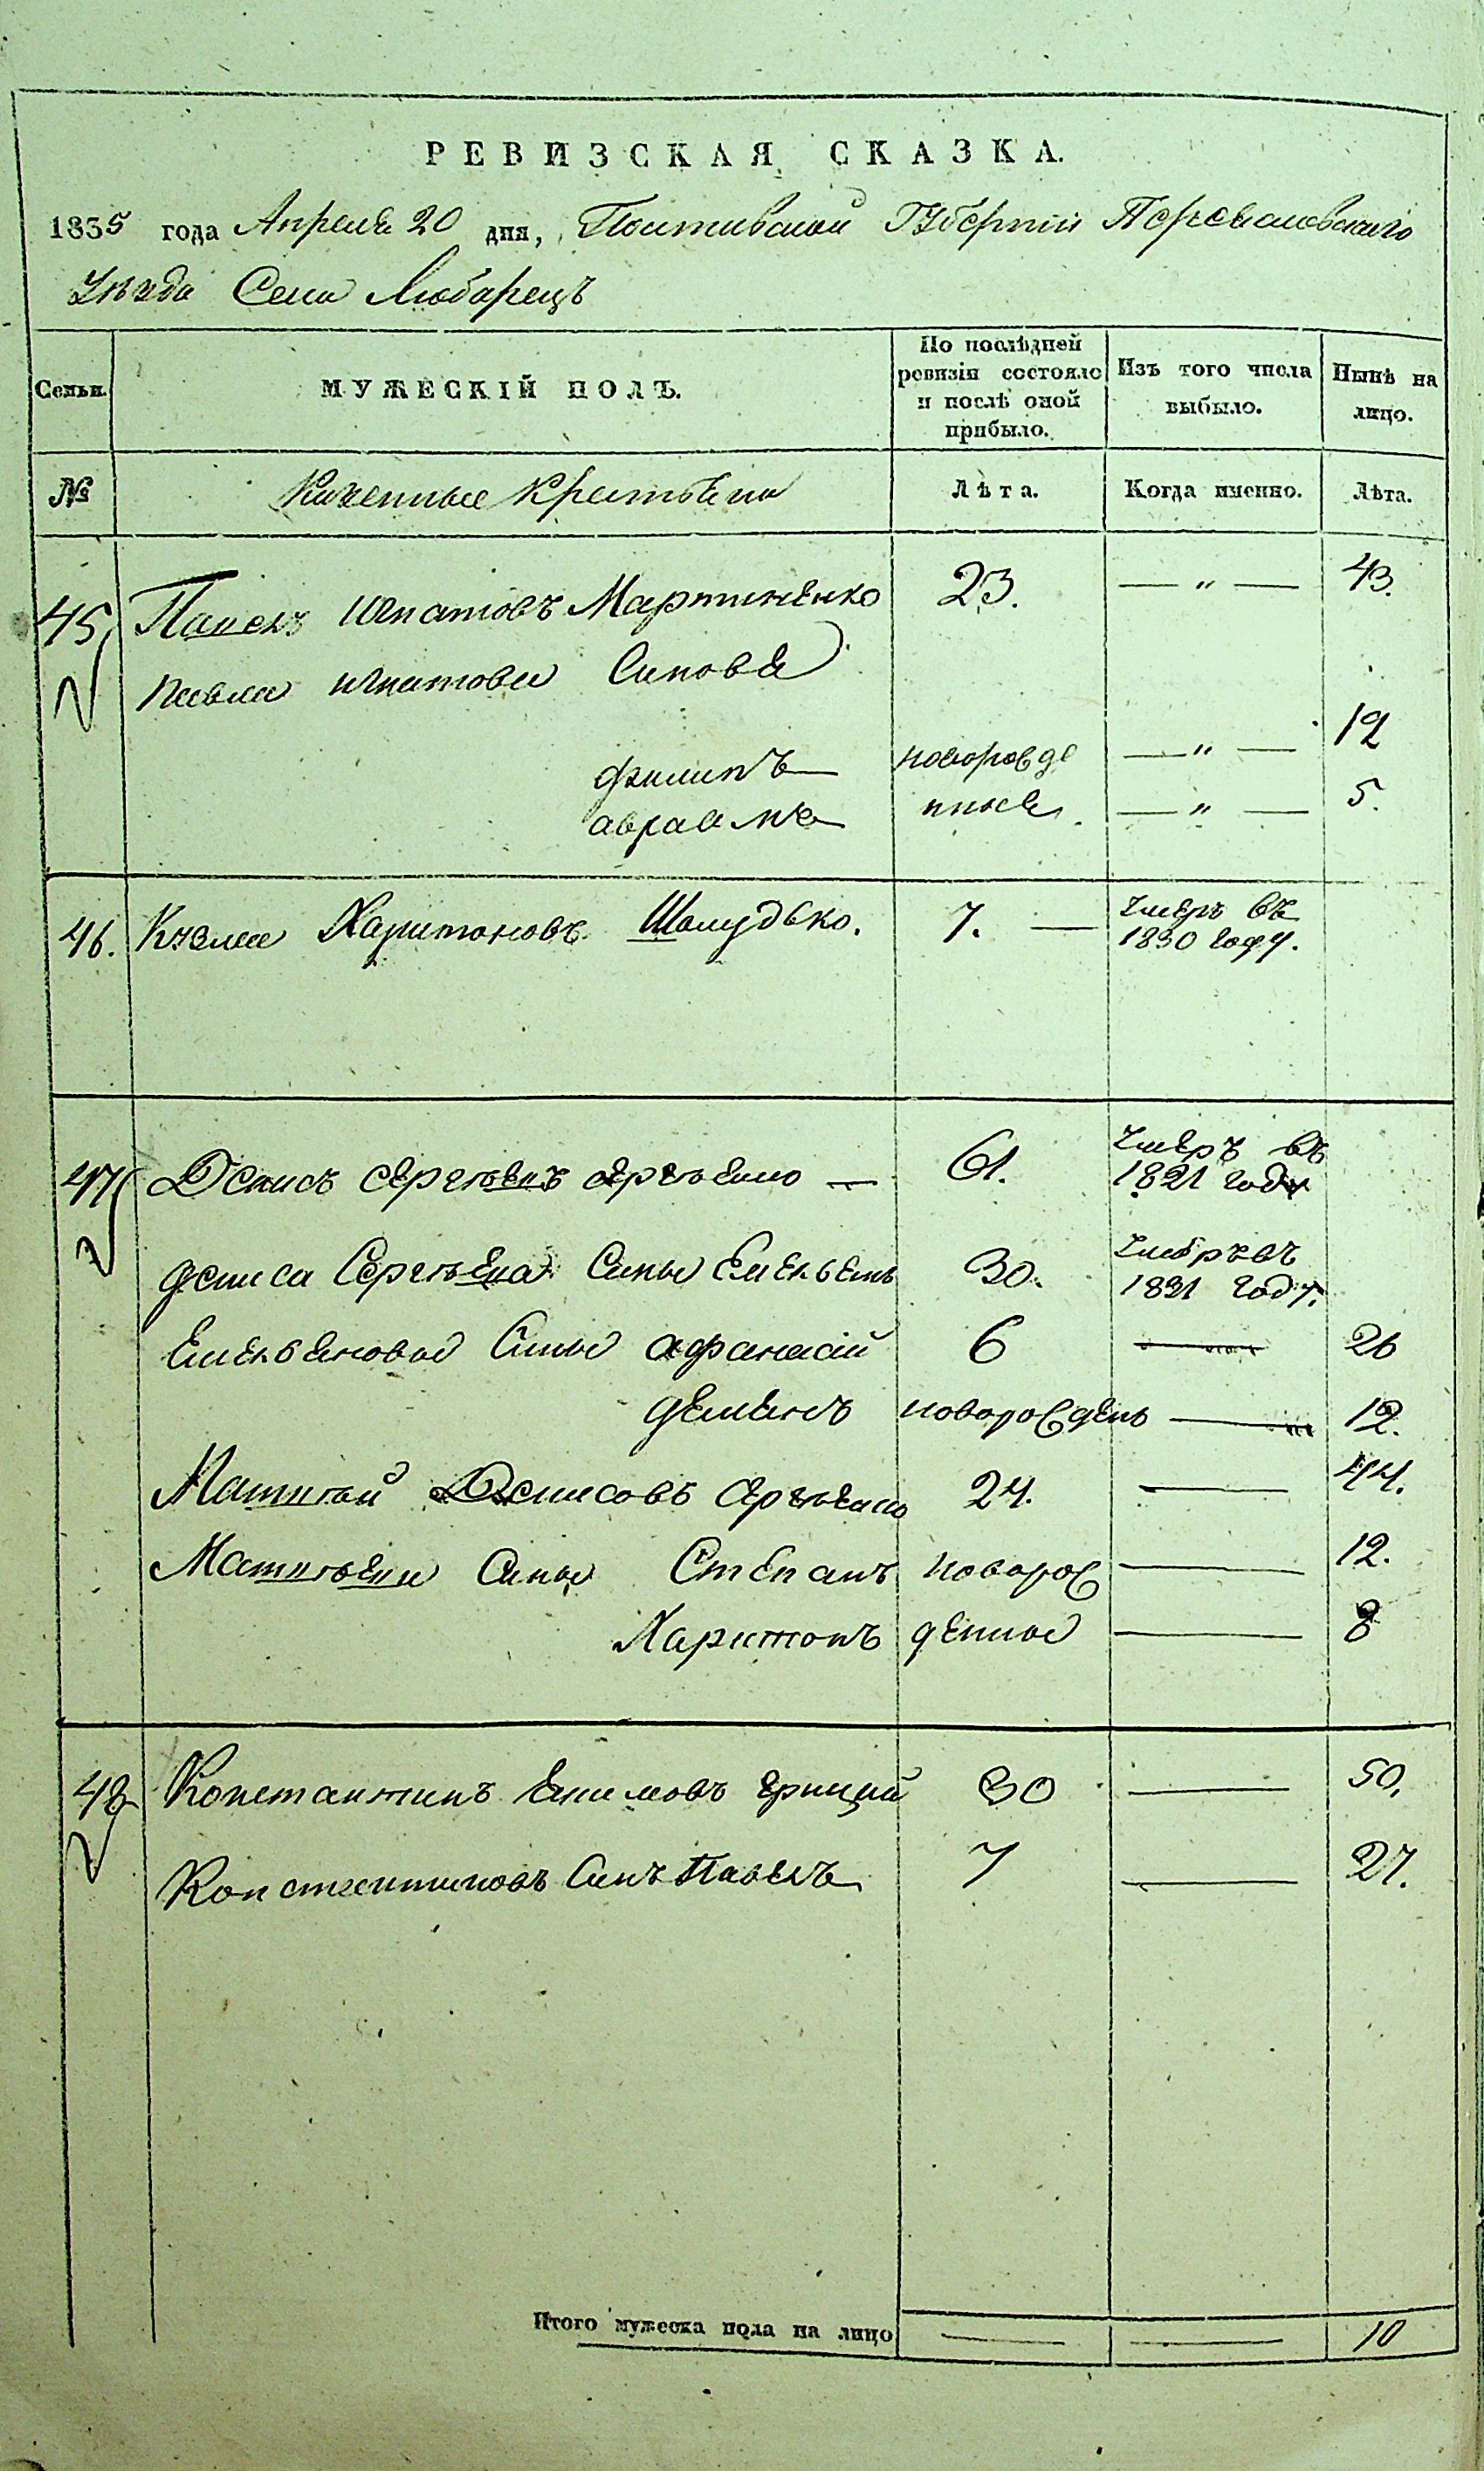 РЕВИЗСКАЯ СКАЗКА.
1835 года Апреля 20 дня, Полтавской Губернии Переяславского
Уѣзда Села Любарецъ
Семьи. МУЖЕСКІЙ ПОЛЪ. По послѣдней ревизіи состояло и послѣ оной прибыло. Изъ того числа выбыло. Нынѣ на лицо.
№ Казенные крестьяне Лѣта. Когда именно. Лѣта.
45 Павелъ Игнатовъ Мартиненко 23. — " — 43.
Павла игнатова Синовя
филипъ новорожде — " — 12
авраамъ нные — " — 5.
46. Кузма Харитоновъ Шолудько. 7. — умеръ въ 1830 году.
47 Денисъ сергѣевъ 61. умеръ въ 1821 году
дениса Сергѣева Сины Емельянъ 30. умеръ въ 1831 году.
Емельяновы Сины афанасій 6 — 26
демянъ новорождень — 12.
Матвѣй Денисовъ 24. — 44.
Матвѣева Сины Степанъ новорож — 12.
Харитонъ денные — 8
48 Константинъ Екимовъ 30 — 50.
Константиновъ Синъ Павелъ 7 — 27.
Итого мужеска пола на лицо — — 10